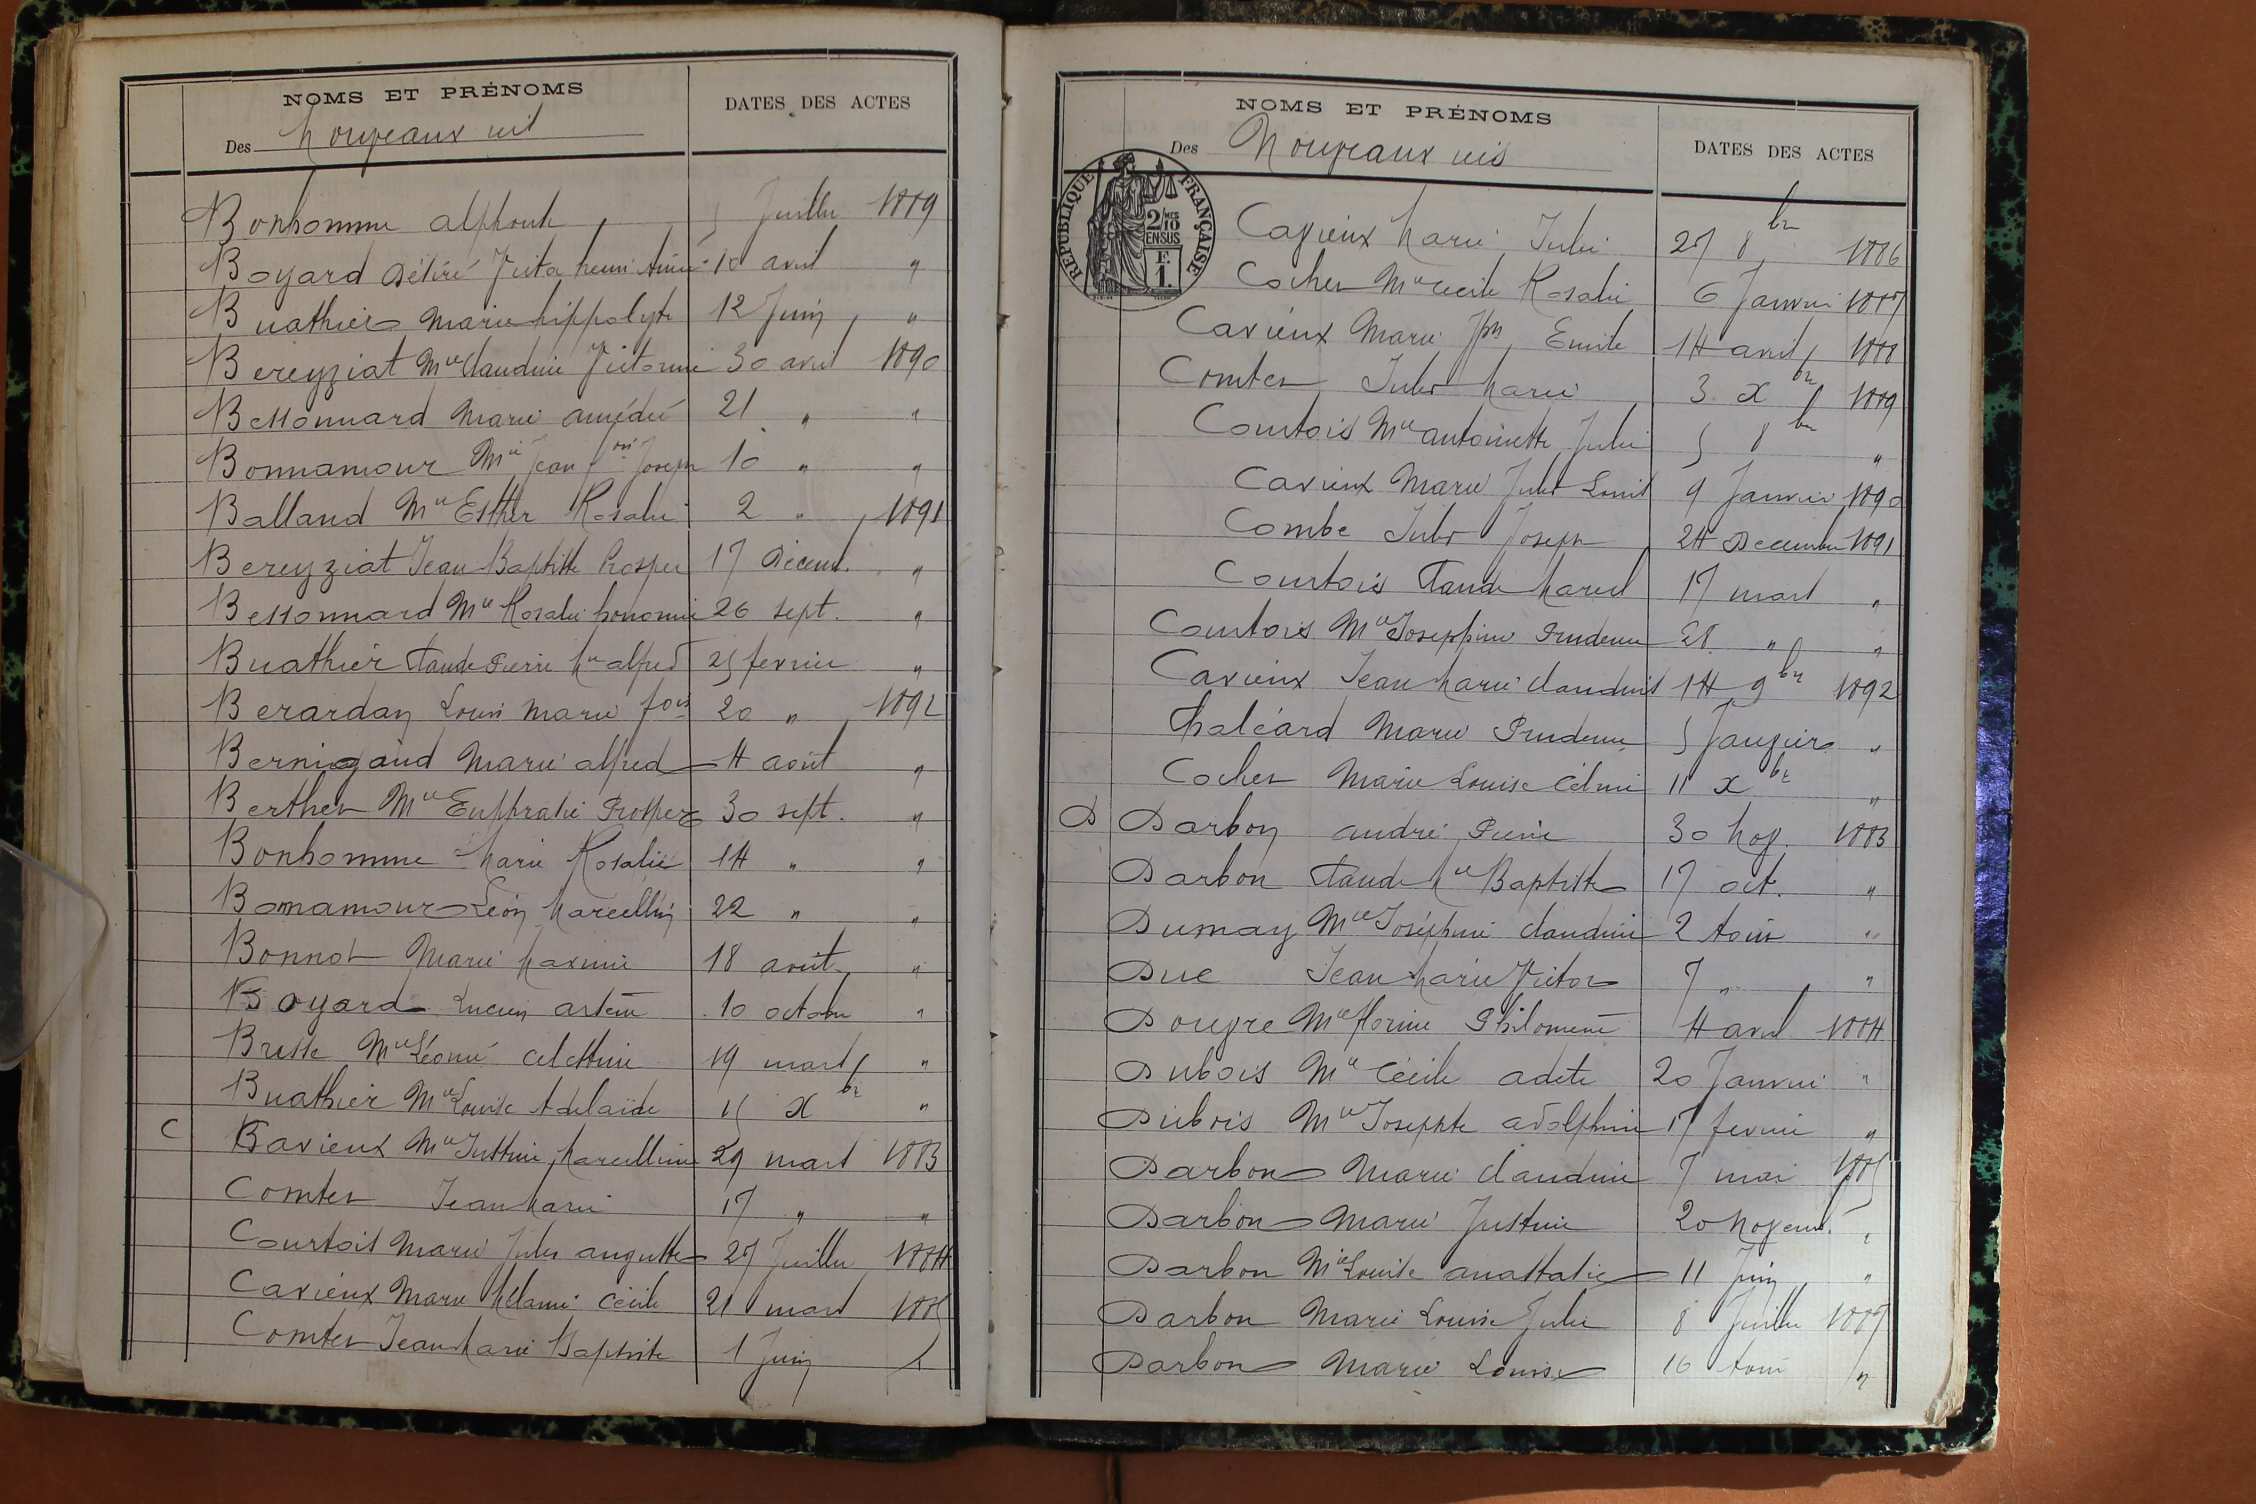 NOMS ET PRÉNOMS
DATES DES ACTES
Des Nouveaux nés
Bonhomme alphonse 5 Juillet 1889
Boyard Désiré Victor henri Aimé 10 avril "
Buathier Marie hippolyte 12 Juin "
Bereyziat Mie Claudine Victorine 30 avril 1890
Bessonnard Marie amédée 21 " "
Bonnamour Mie Jean fois Joseph 10 " "
Balland Mie Esther Rosalie 2 " 1891
Bereyziat Jean Baptiste Prosper 17 Décem. "
Bessonnard Mie Rosalie honorine 26 sept. "
Buathier Claude Pierre Mie alfred 25 fevrier "
Berardan Louis Marie fois 20 " 1892
Bernigaud Marie alfred 4 août "
Berthet Mie Euphrasie Prospere 30 sept. "
Bonhomme Marie Rosalie 14 " "
Bonnamour Léon Marcellin 22 " "
Bonnot Marie Maximie 18 août "
Boyard Lucien 10 octobre "
Bresse Mie Léonie Celestine 19 mars "
Buathier Mie Louise Adelaïde 15 xbre "
C Cavieux Mie Justine Marcelline 29 mars 1883
Comtet Jean Marie 17 " "
Courtois Marie Jules auguste 27 Juillet 1884
Cavieux Marie Mélanie Cécile 21 mars 1885
Comtet Jean Marie Baptiste 1 Juin "
NOMS ET PRÉNOMS
DATES DES ACTES
Des Nouveaux nés
RÉPUBLIQUE FRANÇAISE
2/10 MES
EN SUS
F.
1.
Cavieux Marie Julie 27 8bre 1886
Cochet Mie Cecile Rosalie 6 Janvier 1887
Cavieux Marie Jph Emile 14 avril 1888
Comtet Jules Marie 3 xbre 1889
Courtois Mie antoinette Julie 5 8bre "
Cavieux Marie Jules Louis 9 Janvier 1890
Combe Jules Joseph 24 Decembre 1891
Courtois Claude Marcel 17 mars "
Courtois Mie Josephine Prudence 28 " "
Cavieux Jean Marie Claudius 14 9bre 1892
Chaléard Marie Prudence 5 Janvier "
Cochet Marie Louise Célinie 11 xbre "
D Darbon andré Pierre 30 Nov. 1883
Darbon Claude Mie Baptiste 17 oct. "
Dumay Mie Joséphine Claudine 2 Août "
Duc Jean Marie Victor 7 " "
Douvre Mie florine Philomène 4 avril 1884
Dubois Mie Cécile adele 20 Janvier "
Dubois Mie Josephte adolphine 17 fevrier "
Darbon Marie Claudine 7 mai 1885
Darbon Marie Justine 20 Novem. "
Darbon Mie Louise anastasie 11 Juin "
Darbon Marie Louise Julie 8 Juillet 1887
Darbon Marie Louise 16 Août "